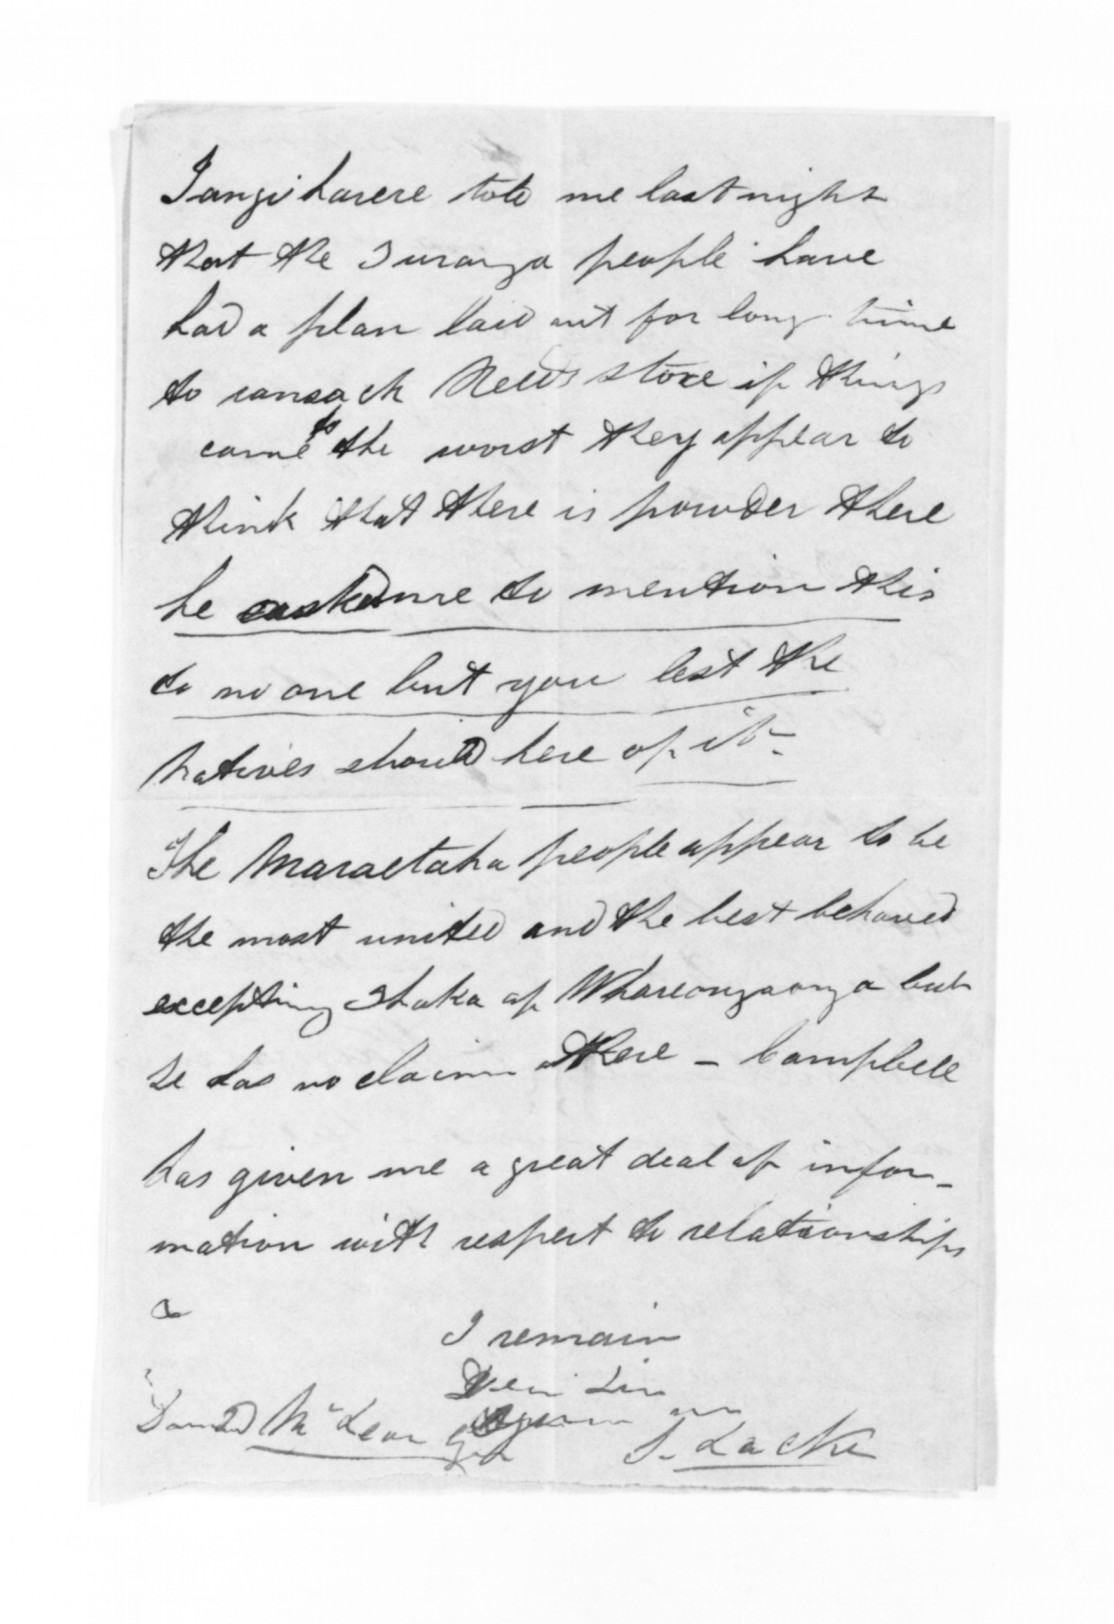 Tangiharere told me last night
that the Turanga people have
had a plan laid out for long time
to ransack Reeds store if things
came to the worst they appear to
think that there is powder there
he asked me to mention this
to no one but you lest the
natives should here of it
The Maraetaha people appear to be
the most united and the best behaved
excepting Ihaka of Whareongaonga but
he has no claim there - Campbell
has given me a great deal of infor-
mation with respect to relationships
&
I remain
Dear Sir
Donald McLean Esq
S. Locke